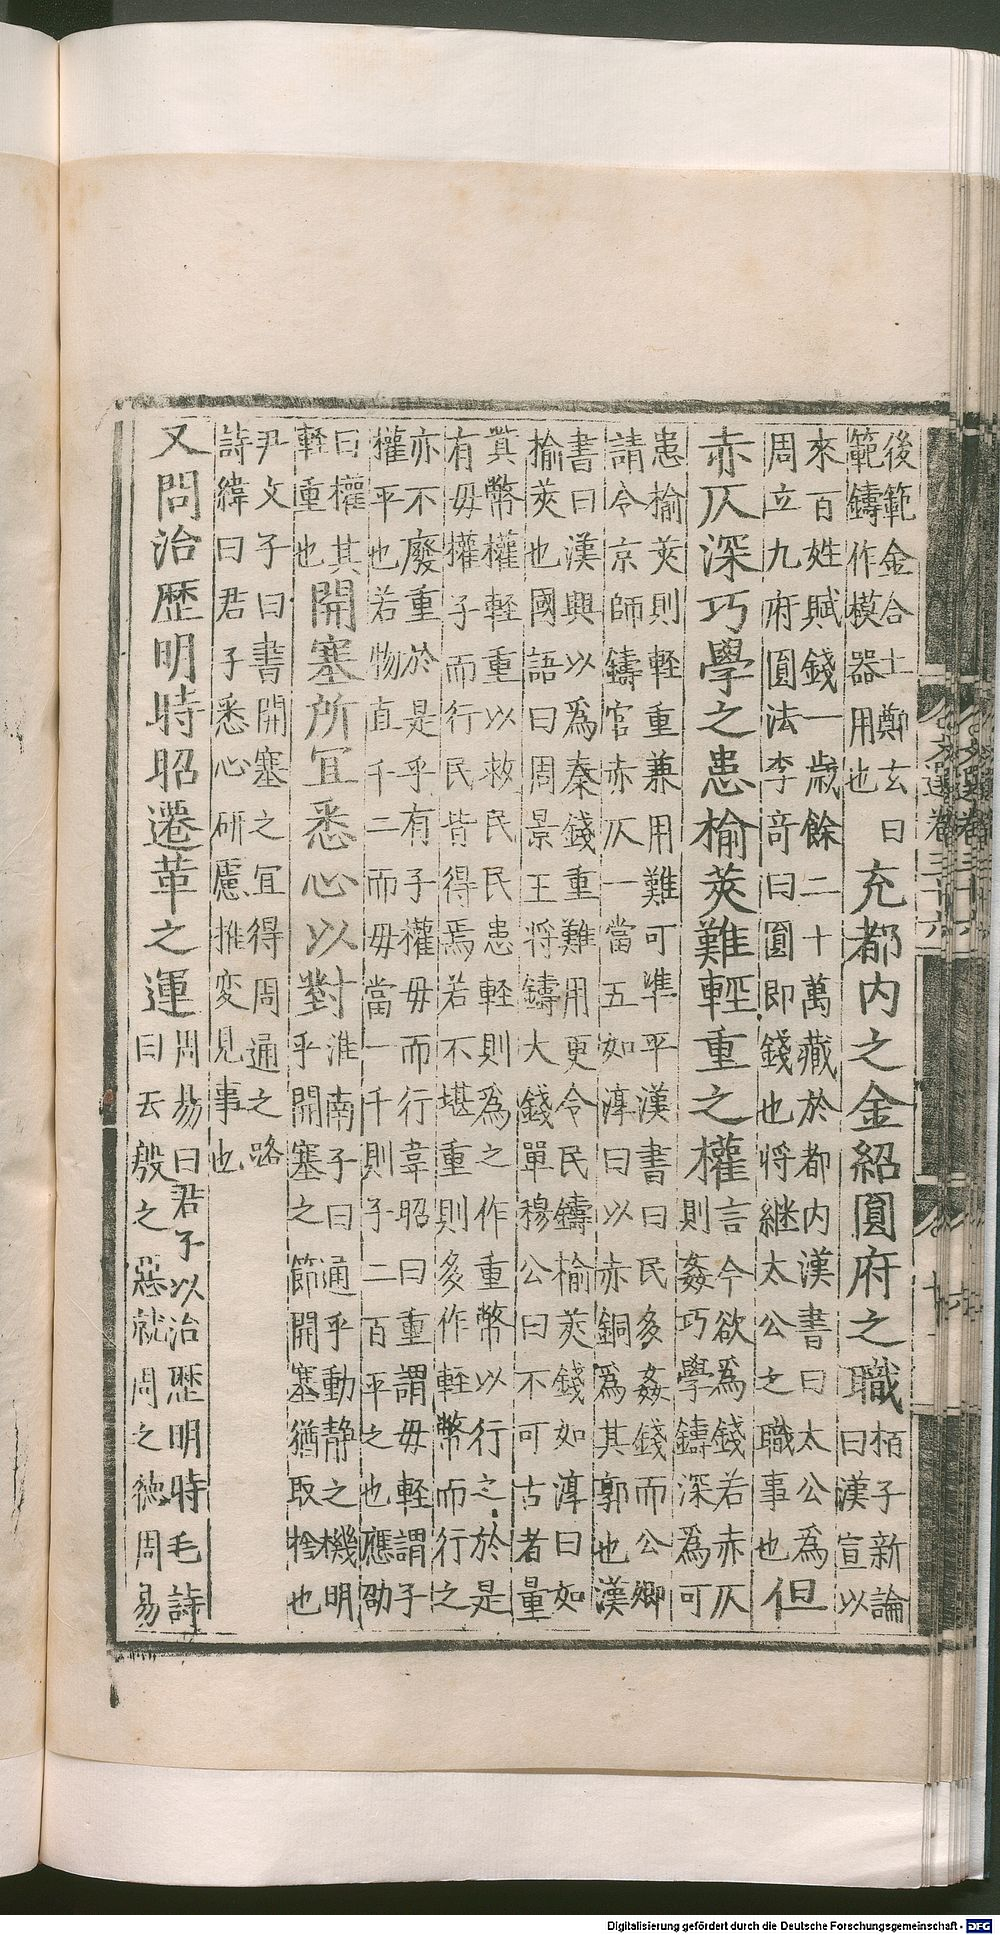 後範金合土鄭玄曰範鑄作模器用也充都内之金紹圓府之職栢子新論曰漢宣以
來百姓賦錢一歲餘二十萬藏於都内漢書曰太公爲周立九府圓法李竒曰圓即錢也將継太公之職事也但
赤仄深巧學之患榆莢難輕重之權言今欲爲錢若赤仄則姦巧學鑄深爲可
患榆莢則軽重兼用難可準平漢書曰民多姦錢而公卿請令京師鑄官赤仄一當五如淳曰以赤銅爲其郭也漢
書曰漢興以爲秦錢重難用更令民鑄榆莢錢如淳曰如榆莢也國語曰周景王將鑄大錢單穆公曰不可古者量
貲幣權軽重以救民民患軽則爲之作重幣以行之於是有毋權子而行民皆得焉若不堪重則多作軽幣而行之
亦不廢重於是乎有子權毋而行韋昭曰重謂毋軽謂子權平也若物直千二而毋當一千則子二百平之也應劭
曰權其軽重也開塞所宜悉心以對淮南子曰通乎動静之機明乎開塞之節開塞猶取捨也
尹文子曰書開塞之宜得周通之路詩緯曰君子悉心研慮推変見事也
又問治歷明時昭遷革之運周易曰君子以治歷明時毛詩曰天殷之惡就周之德周易
文選卷三十六
Digitalisierung gefördert durch die Deutsche Forschungsgemeinschaft - DFG